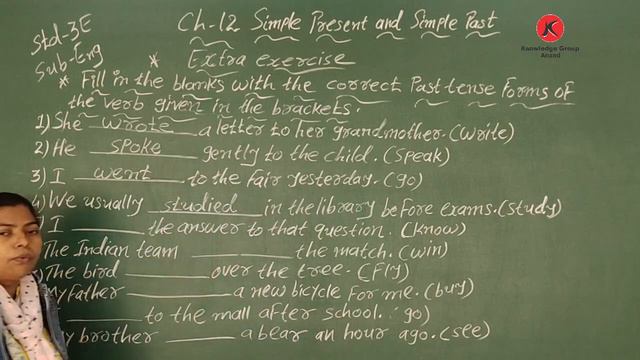 Std-3E
Sub-Eng
Ch-12 Simple Present and Simple Past
Knowledge Group
Anand
* Extra exercise
* Fill in the blanks with the correct Past tense Forms of
the verb given in the brackets.
1) She wrote a letter to her grandmother. (write)
2) He spoke gently to the child. (speak)
3) I went to the fair yesterday. (go)
4) We usually studied in the library before exams. (study)
) I ______ the answer to that question. (know)
The Indian team ______ the match. (win)
) The bird ______ over the tree. (Fly)
My Father ______ a new bicycle for me. (buy)
______ to the mall after school. go)
My brother ______ a bear an hour ago. (see)